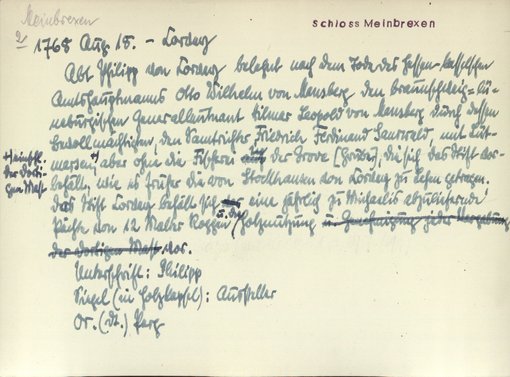 Meinbrexen
Schloss Meinbrexen
2) 1768 Aug 15. - Corvey
Abt Philipp von Corvey belehnt nach dem Tode des Hessen-Kasselschen
Amtshauptmanns Otto Wilhelm von Mansberg den Braunschweig-Lü-
neburgischen Generalleutnant Hilmar Leopold von Mansberg durch dessen
Bevollmächtigten, den Samtrichter Friedrich Ferdinand, mit Lüt-
mersen, aber ohne die Fischerei auf der Grove [Grube], die sich das Stift vor-
behält, wie es früher die von Stockhausen von Corvey zu Lehen getragen.
einschl.
der dorti-
gen Mast
Das Stift Corvey behält sich eine jährlich zu Michaelis abzuliefernde
Pächte von 12 Malter Roggen u. die Holznutzung u. Genehmigung jeder
der dortigen Mast vor.
Unterschrift: Philipp
Siegel (in Holzkapsel): Aussteller
Or. (dt.) Perg